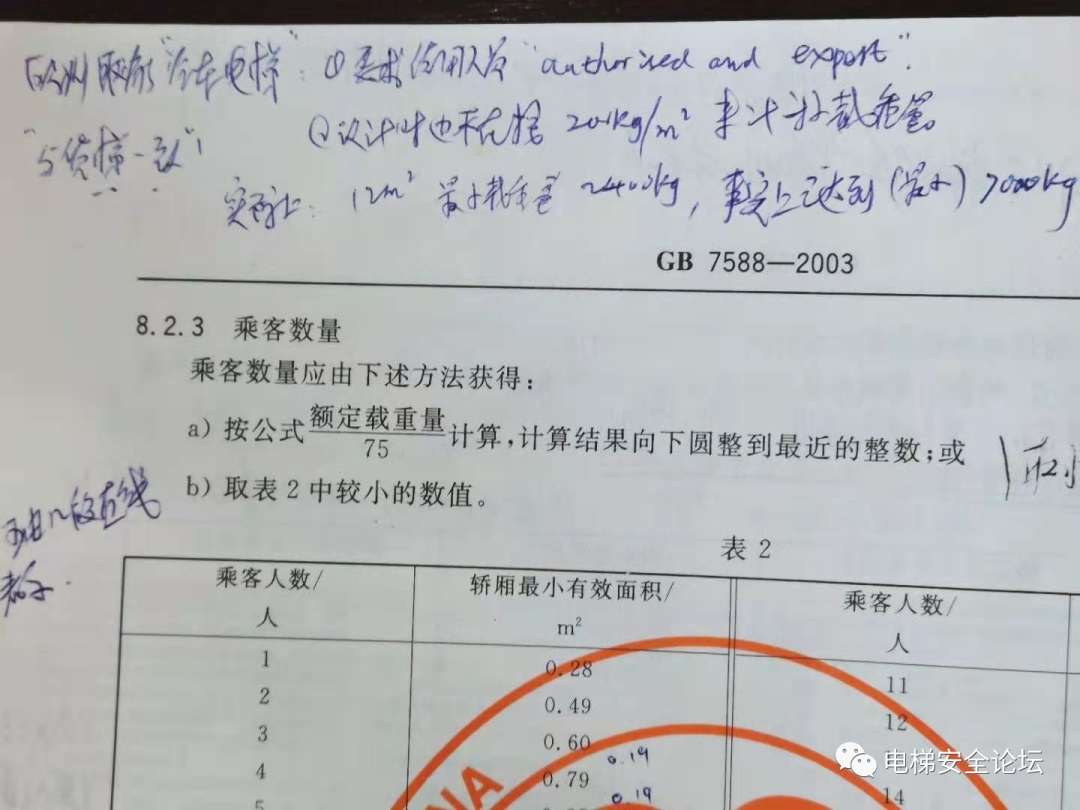 欧洲取消“汽车电梯”：①要求使用人员“authorised and expert”.
②设计时也不在按200kg/m² 来计算载重量。
“与货梯一致”！
实际上：12m² 最小载重量2400kg，事实上达到（最小）7000kg
GB 7588—2003
8.2.3 乘客数量
乘客数量应由下述方法获得：
a）按公式额定载重量/75计算，计算结果向下圆整到最近的整数；或
b）取表 2 中较小的数值。
表 2
乘客人数/人 轿厢最小有效面积/m² 乘客人数/人
1 0.28 11
2 0.49 12
3 0.60
0.19
4 0.79 14
0.19
5
NA
电梯安全论坛